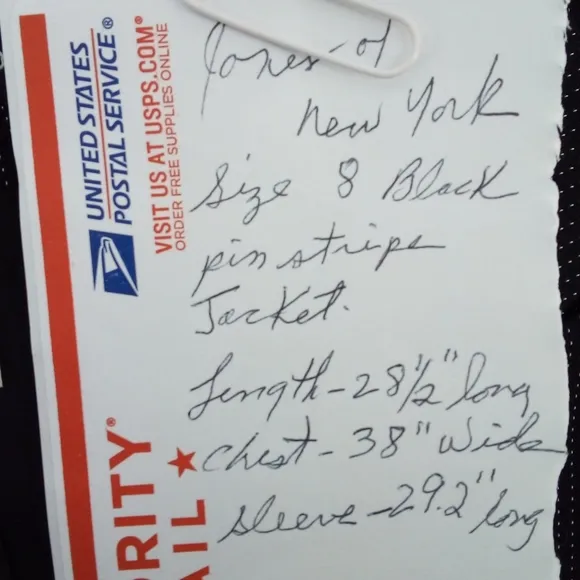 UNITED STATES
POSTAL SERVICE®
VISIT US AT USPS.COM®
ORDER FREE SUPPLIES ONLINE
RITY®
AIL
Jones-of
New York
Size 8 Black
pin stripe
Jacket.
Length-28½" long
chest-38" wide
sleeve-29.2" long